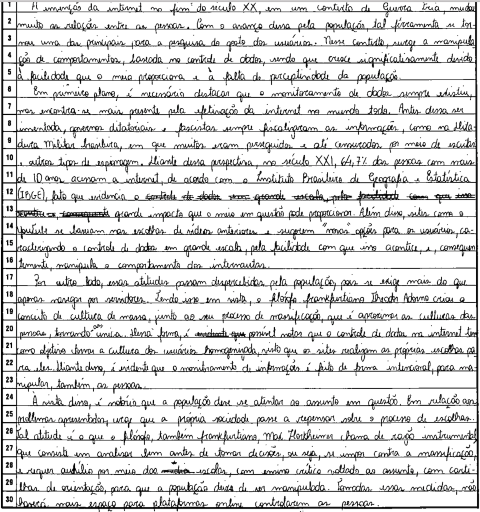 1 A invenção da internet no fim do século XX, em um contexto de Guerra Fria, mudou
2 muito as relações entre as pessoas. Com o avanço dessa pela população, tal ferramenta se tor-
3 nou uma das principais para a pesquisa do gosto dos usuários. Nesse contexto, surge a manipula-
4 ção de comportamentos, baseada no controle de dados, sendo que cresce significativamente devido
5 à facilidade que o meio proporciona e à falta de perceptividade da população.
6 Em primeiro plano, é necessário destacar que o monitoramento de dados sempre existiu,
7 mas encontra-se mais presente pela efetivação da internet no mundo todo. Antes dessa ser
8 inventada, governos ditatoriais e fascistas sempre fiscalizaram as informações, como na Dita-
9 dura Militar brasileira, em que muitos eram perseguidos e até censurados por meio de escutas
10 e outros tipos de espionagem. Diante dessa perspectiva, no século XXI, 64,7% das pessoas com mais
11 de 10 anos acessam a internet, de acordo com o Instituto Brasileiro de Geografia e Estatística
12 (IBGE), fato que evidencia o
13 grande impacto que o meio em questão pode proporcionar. Além disso, sites como o
14 Youtube se baseiam nas escolhas de vídeos anteriores e sugerem "novas" opções para os usuários, ca-
15 racterizando o controle de dados em grande escala, pela facilidade com que isso acontece, e, consequen-
16 temente, manipula o comportamento dos internautas.
17 Por outro lado, essas atitudes passam despercebidas pela população, pois se exige mais do que
18 apenas navegar por servidores. Tendo isso em vista, o filósofo frankfurtiano Theodor Adorno criou o
19 conceito de cultura de massa, junto ao seu processo de massificação, que é aproximar as culturas das
20 pessoas, tornando-as única. Dessa forma, é possível notar que o controle de dados na internet tem
21 como objetivo tornar a cultura dos usuários homogeneizada, visto que os sites realizam as próprias escolhas pa-
22 ra eles. Diante disso, é evidente que o monitoramento de informações é feito de forma intencional, para ma-
23 nipular, também, as pessoas.
24 À vista disso, é notório que a população deve se atentar ao assunto em questão. Em relação aos
25 problemas apresentados, urge que a própria sociedade passe a repensar sobre o processo de escolhas.
26 Tal atitude é o que o filósofo, também frankfurtiano, Max Horkheimer chama de razão instrumental,
27 que consiste em analisar bem antes de tomar decisões, ou seja, se impor contra a massificação,
28 e requer auxílio por meio das escolas, com ensino crítico voltado ao assunto, com carti-
29 lhas de orientação, para que a população deixe de ser manipulada. Tomadas essas medidas, não
30 haverá mais espaço para plataformas online controlarem as pessoas.